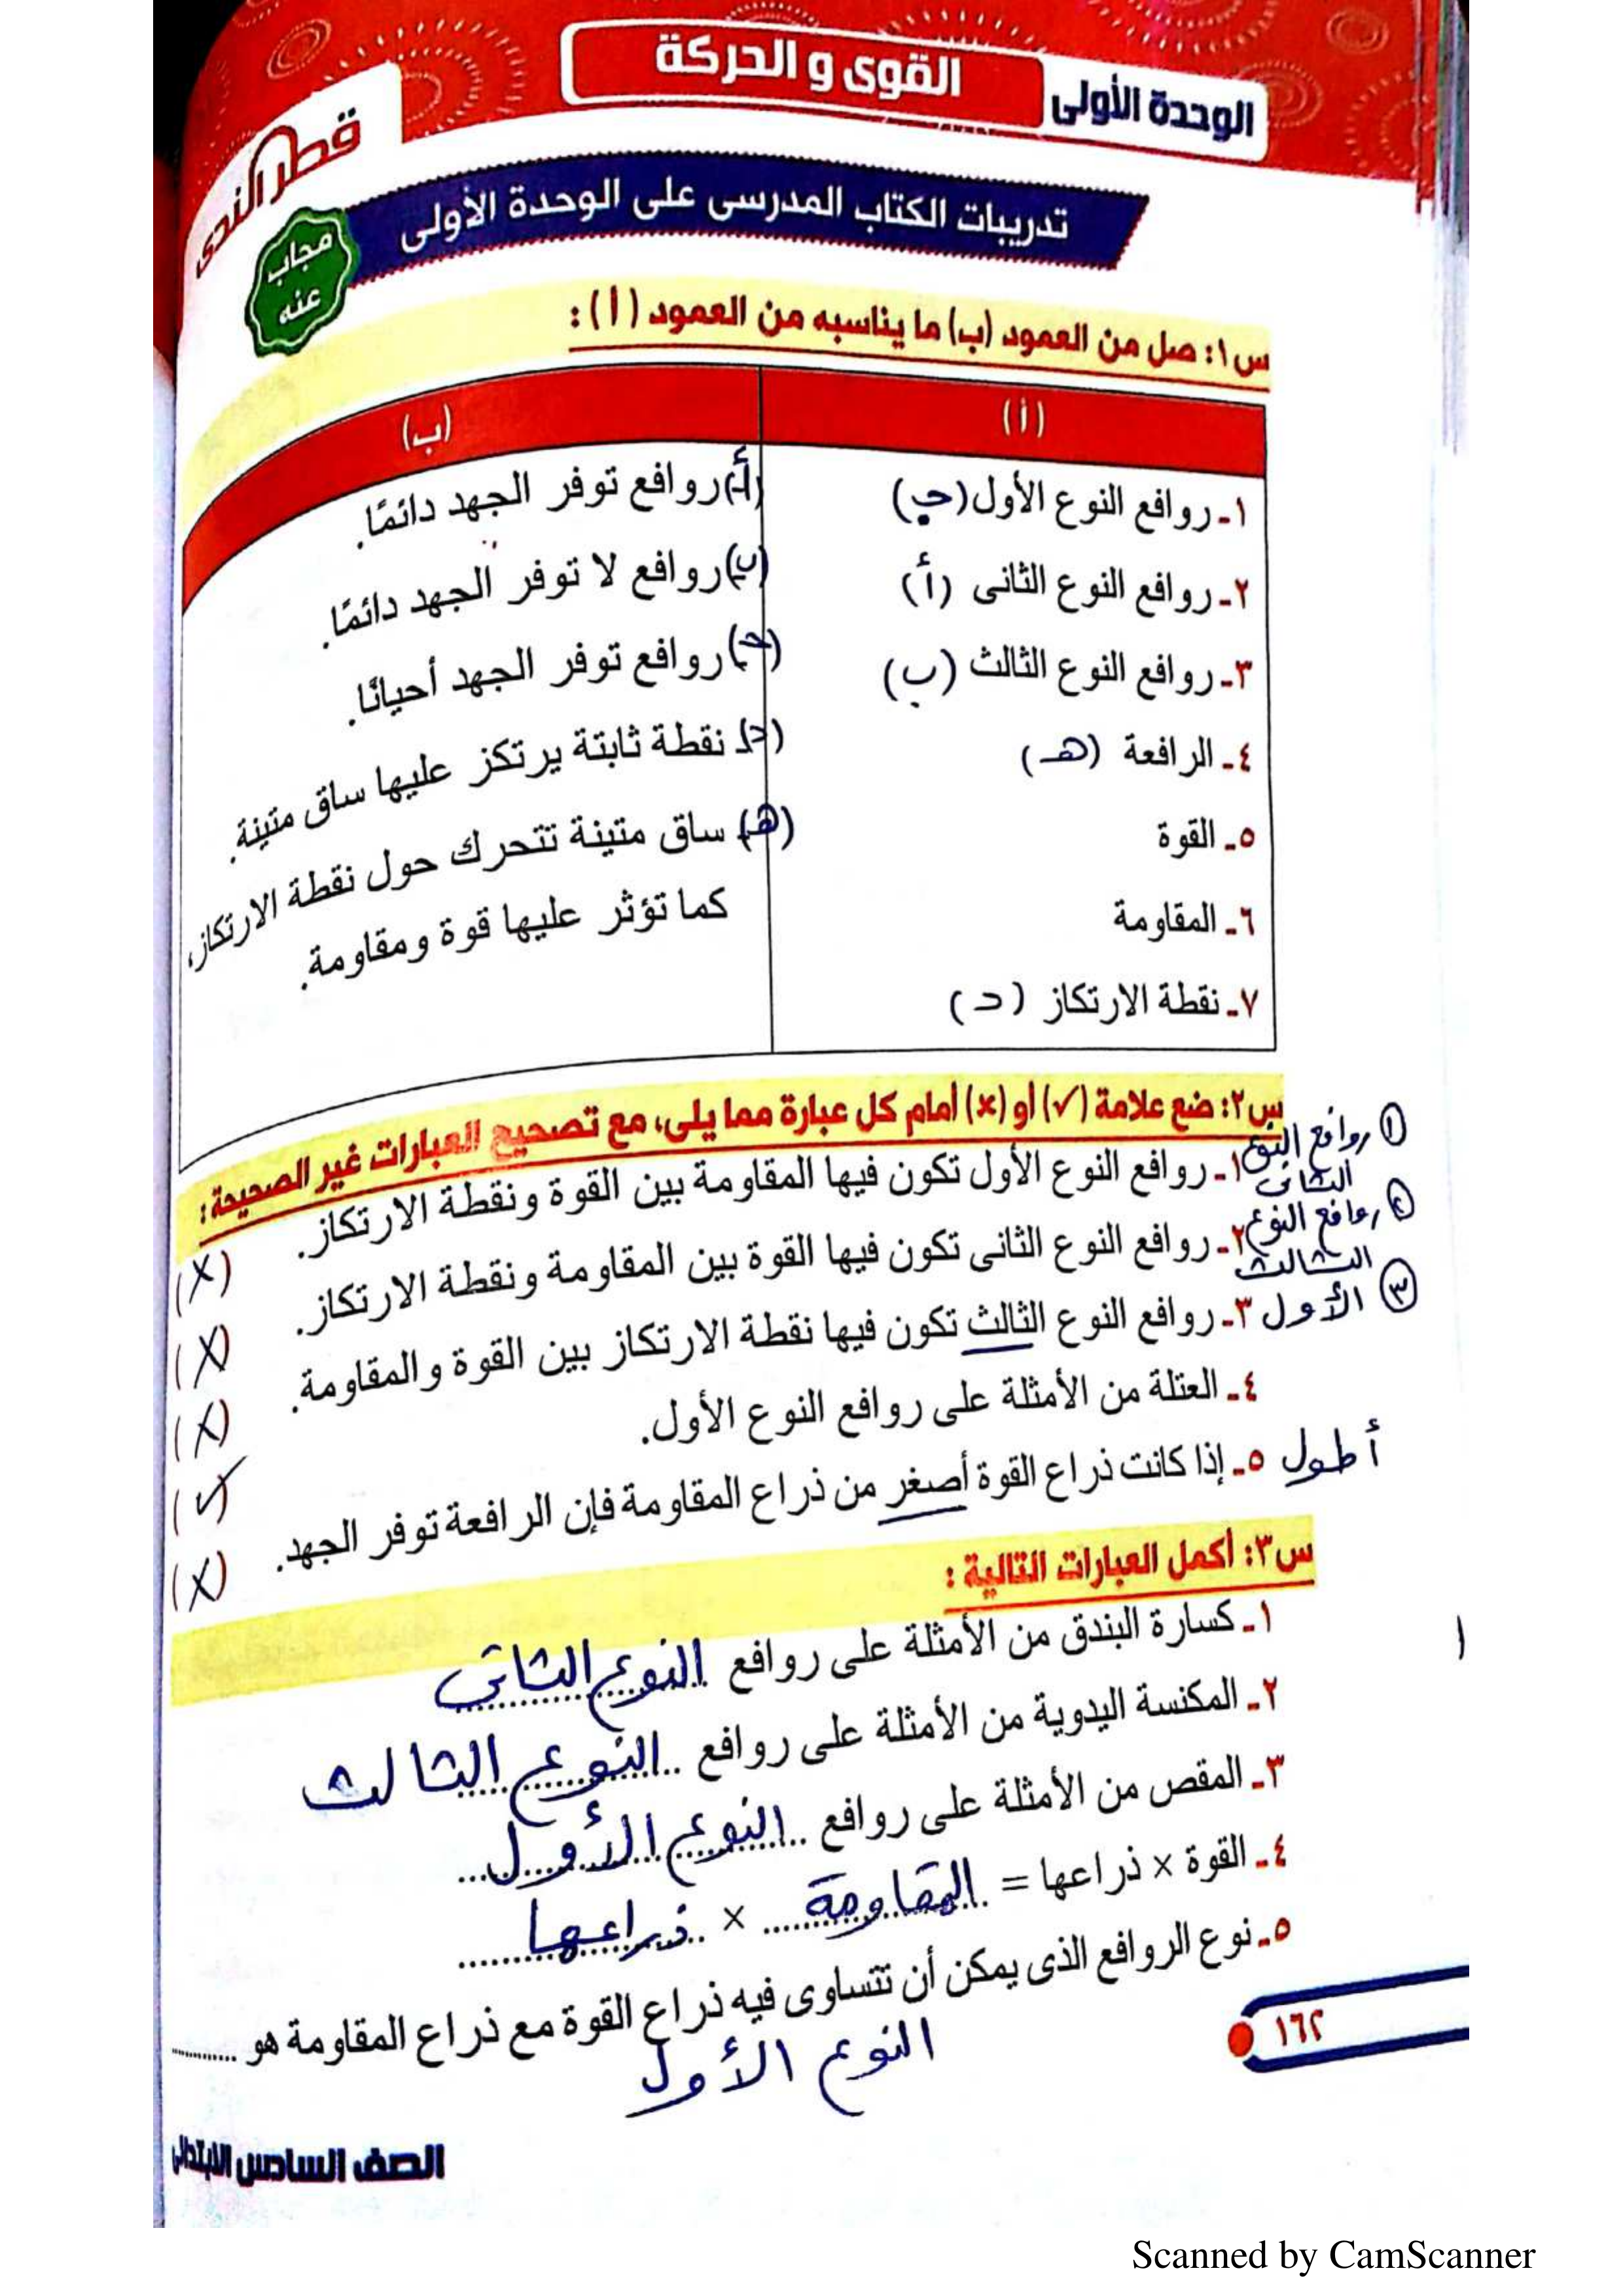 الوحدة الأولى القوى و الحركة
قطر الندى
تدريبات الكتاب المدرسى على الوحدة الأولى
مجاب عنه
س١: صل من العمود (ب) ما يناسبه من العمود (أ):
(أ) (ب)
١- روافع النوع الأول (جـ) (أ) روافع توفر الجهد دائمًا.
٢- روافع النوع الثانى (أ) (ب) روافع لا توفر الجهد دائمًا.
٣- روافع النوع الثالث (ب) (جـ) روافع توفر الجهد أحيانًا.
٤- الرافعة (هـ) (د) نقطة ثابتة يرتكز عليها ساق متينة.
٥- القوة (هـ) ساق متينة تتحرك حول نقطة الارتكاز،
٦- المقاومة كما تؤثر عليها قوة ومقاومة.
٧- نقطة الارتكاز (د)
س٢: ضع علامة (✓) أو (×) أمام كل عبارة مما يلى، مع تصحيح العبارات غير الصحيحة:
① روافع النوع الثانى
١- روافع النوع الأول تكون فيها المقاومة بين القوة ونقطة الارتكاز. (×)
② روافع النوع الثالث
٢- روافع النوع الثانى تكون فيها القوة بين المقاومة ونقطة الارتكاز. (×)
③ الأول ٣- روافع النوع الثالث تكون فيها نقطة الارتكاز بين القوة والمقاومة. (×)
٤- العتلة من الأمثلة على روافع النوع الأول. (✓)
أطول ٥- إذا كانت ذراع القوة أصغر من ذراع المقاومة فإن الرافعة توفر الجهد. (×)
س٣: أكمل العبارات التالية :
١- كسارة البندق من الأمثلة على روافع النوع الثانى
٢- المكنسة اليدوية من الأمثلة على روافع النوع الثالث
٣- المقص من الأمثلة على روافع النوع الأول
٤- القوة × ذراعها = المقاومة × ذراعها
٥- نوع الروافع الذى يمكن أن تتساوى فيه ذراع القوة مع ذراع المقاومة هو ............
النوع الأول
١٦٢
الصف السادس الابتدائى
Scanned by CamScanner